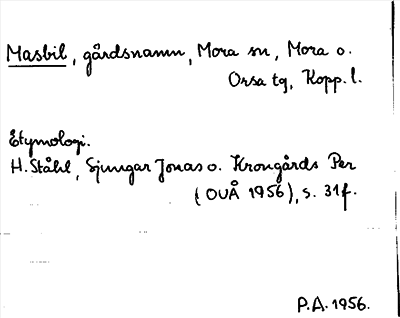 Masbil, gårdsnamn, Mora sn, Mora o.
Orsa tg, Kopp. l.
Etymologi.
H. Ståhl, Sjungar Jonas o. Krongårds Per
(OUÅ 1956), s. 31 f.
P.A. 1956.